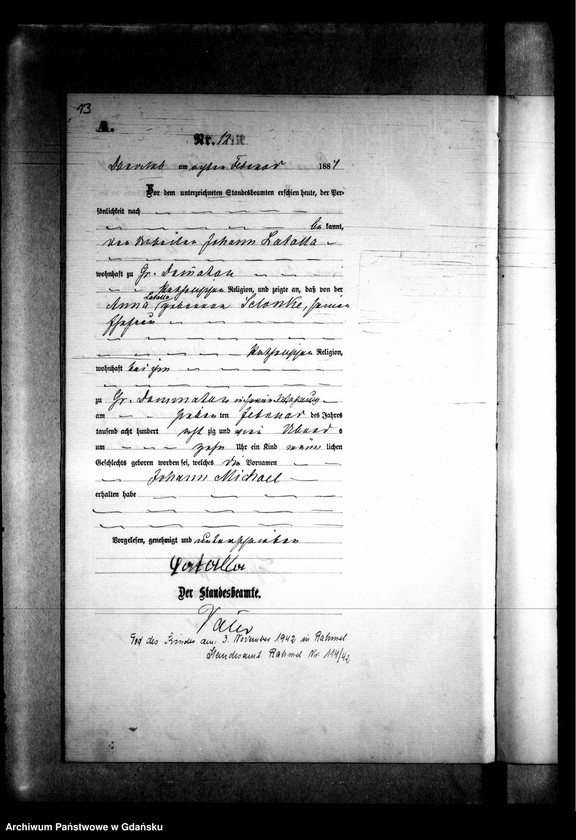 13
A.
Nr. 12
am achten Februar 1884
Vor dem unterzeichneten Standesbeamten erschien heute, der Per-
sönlichkeit nach
be kannt,
der Arbeiter Johann Latalla
wohnhaft zu Gr. Dommatau
katholischer Religion, und zeigte an, daß von der
Latalla
Anna geborenen Selonke, seiner
Ehefrau
katholischer Religion,
wohnhaft bei ihm
zu Gr. Dommatau in seiner Wohnung
am sieben ten Februar des Jahres
tausend acht hundert acht zig und vier Abend s
um zehn Uhr ein Kind männ lichen
Geschlechts geboren worden sei, welches die Vornamen
Johann Michael
erhalten habe
Vorgelesen, genehmigt und unterschrieben
Latalla
Der Standesbeamte.
Tod des Kindes am 3. November 1942 in Rahmel
Standesamt Rahmel Nr. 114/42
Archiwum Państwowe w Gdańsku